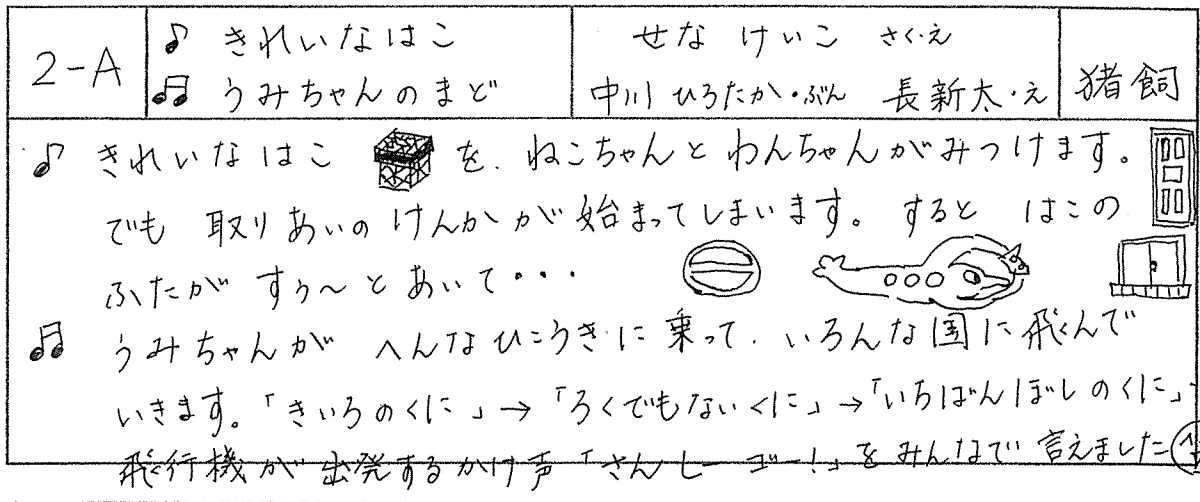 2-A
♪ きれいなはこ
せな けいこ さく・え
♫ うみちゃんのまど
中川 ひろたか・ぶん 長新太・え
猪飼
♪ きれいなはこ を、ねこちゃんと わんちゃんがみつけます。
でも 取りあいの けんかが始まってしまいます。 すると はこの
ふたが すぅ〜と あいて・・・
♫ うみちゃんが へんなひこうきに乗って、いろんな国に飛んで
いきます。「きいろのくに」→「ろくでもないくに」→「いちばんぼしのくに」
飛行機が出発するかけ声「さんしーゴー!」をみんなで言えました